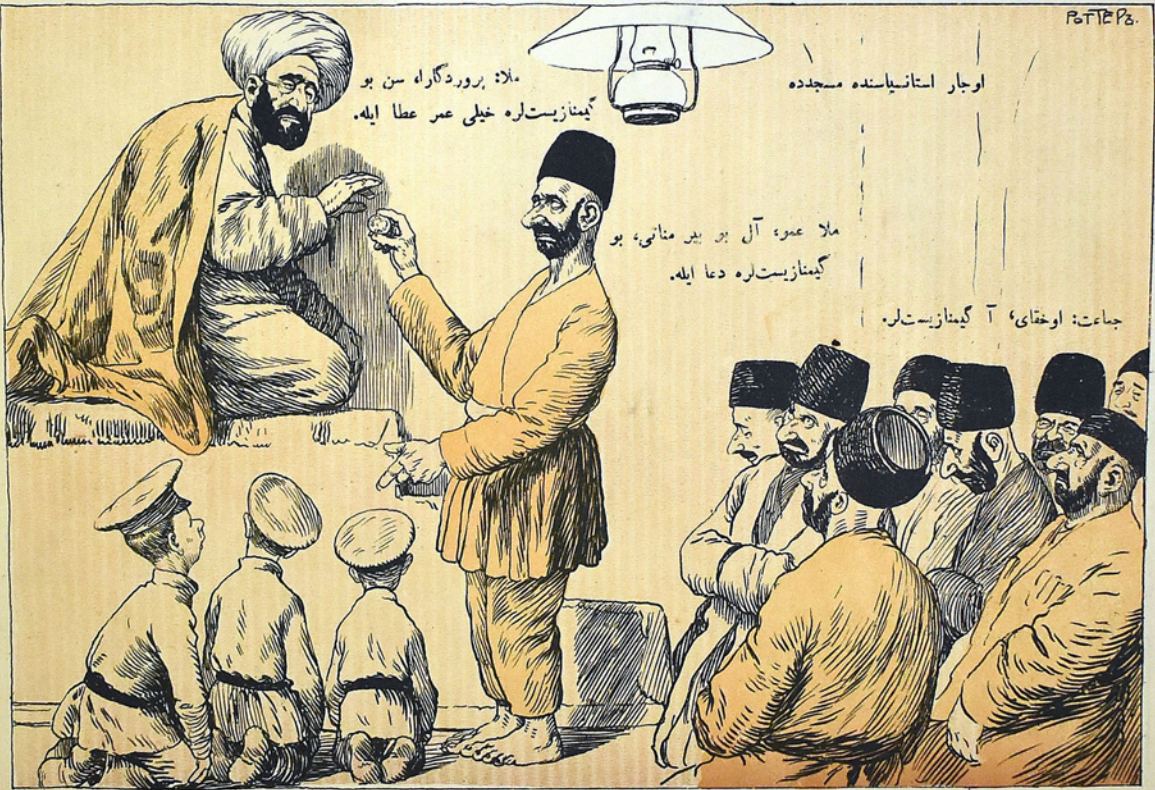 РОТТЕРЪ.
اوجار استانسیاسنده مسجدده
ملا: پروردگارا، سن بو
گیمنازیست‌لره خیلی عمر عطا ایله.
ملا عمو، آل بو بیر مناتی، بو
گیمنازیست‌لره دعا ایله.
جماعت: اوخقای، آ گیمنازیست‌لر.